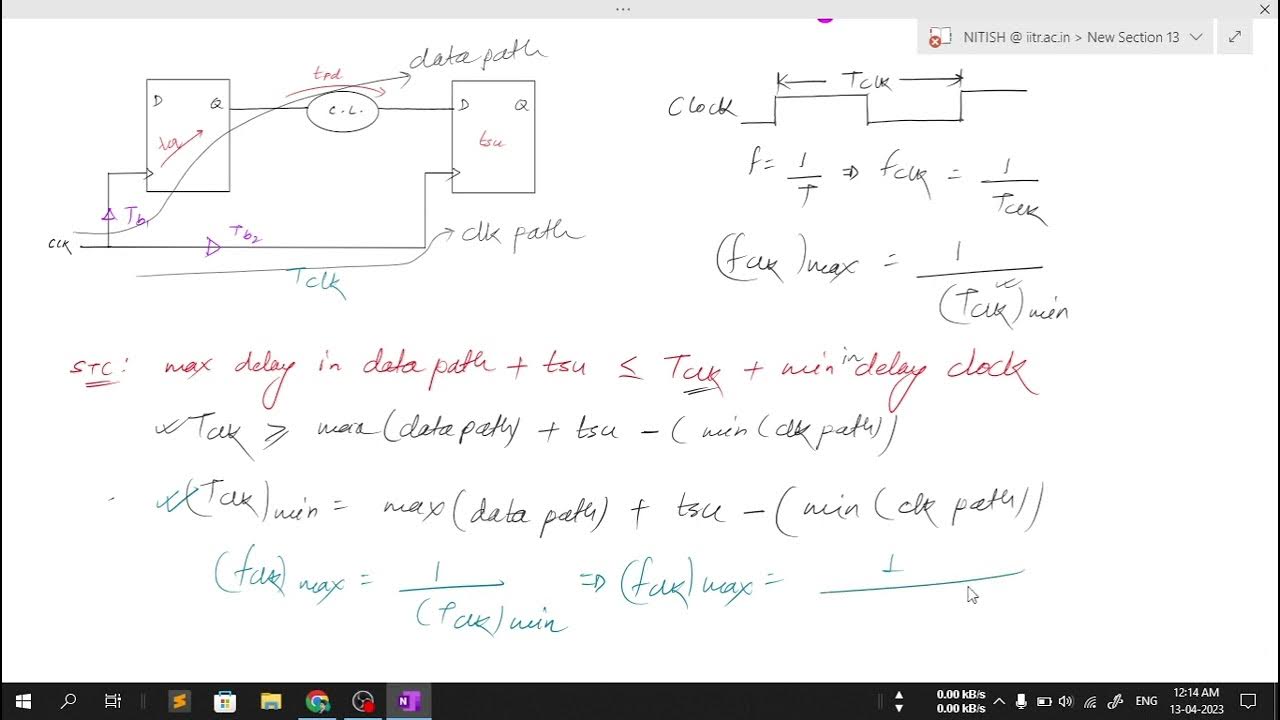 ...
NITISH @ iitr.ac.in > New Section 13
data path
tpd
D Q
C.L.
D Q
tsu
Tb1
CLK
Tb2
clk path
Tclk
Tclk
Clock
f = 1/T ⇒ fclk = 1/Tclk
(fclk)max = 1/(Tclk)min
STC: max delay in data path + tsu ≤ Tclk + min in delay clock
Tclk ≥ max(data path) + tsu - (min(clk path))
(Tclk)min = max(data path) + tsu - (min(clk path))
(fclk)max = 1/(Tclk)min ⇒ (fclk)max = 1
0.00 kB/s
0.00 kB/s
ENG
12:14 AM
13-04-2023